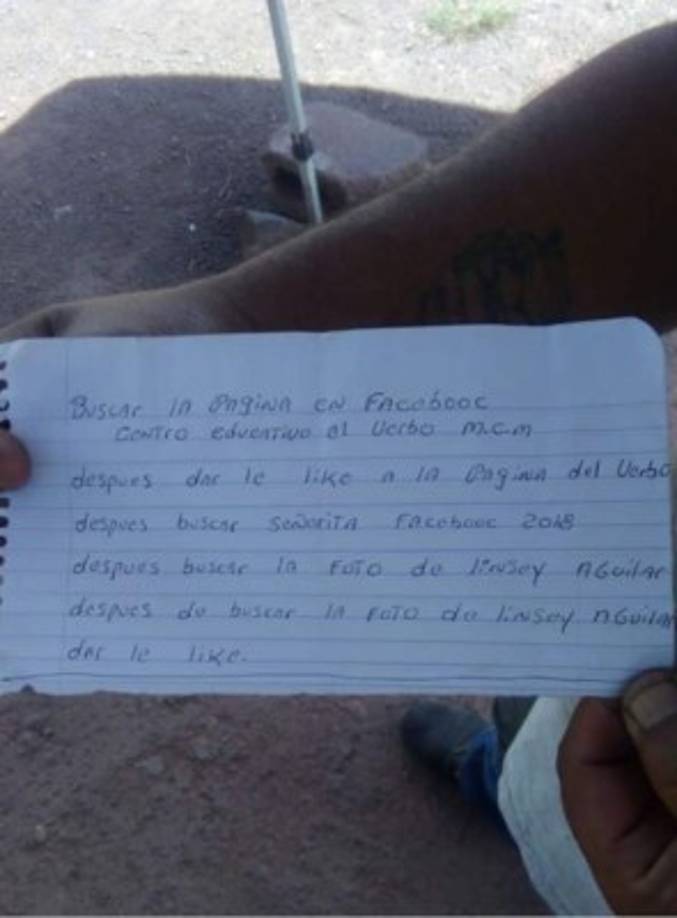 Buscar la Pagina en Facebooc
Centro educativo el Verbo M.C.M
despues dar le like a la Pagina del Verbo
despues buscar señorita Facebooc 2018
despues buscar la Foto de linsey Aguilar
despues de buscar la Foto de linsey Aguilar
dar le like.